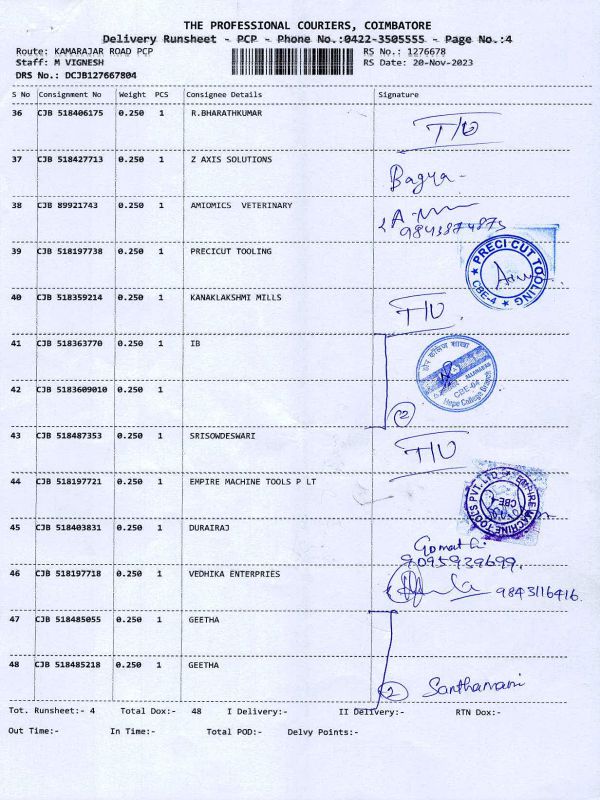 THE PROFESSIONAL COURIERS, COIMBATORE
Delivery Runsheet - PCP - Phone No.:0422-3505555 - Page No.:4
Route: KAMARAJAR ROAD PCP RS No.: 1276678
Staff: M VIGNESH RS Date: 20-Nov-2023
DRS No.: DCJB127667804
S No Consignment No Weight PCS Consignee Details Signature
36 CJB 518406175 0.250 1 R.BHARATHKUMAR T/U
37 CJB 518427713 0.250 1 Z AXIS SOLUTIONS Bagya
38 CJB 89921743 0.250 1 AMIOMICS VETERINARY
9843874875
39 CJB 518197738 0.250 1 PRECICUT TOOLING
PRECI CUT TOOLING
CBE-4
40 CJB 518359214 0.250 1 KANAKLAKSHMI MILLS T/U
41 CJB 518363770 0.250 1 IB
CBE-04
Hope College Branch
42 CJB 5183609010 0.250 1 2
43 CJB 518487353 0.250 1 SRISOWDESWARI T/U
44 CJB 518197721 0.250 1 EMPIRE MACHINE TOOLS P LT
EMPIRE MACHINE TOOLS PVT. LTD.
CBE-4
45 CJB 518403831 0.250 1 DURAIRAJ
Gomathi
9095939699
46 CJB 518197718 0.250 1 VEDHIKA ENTERPRIES 9843116416
47 CJB 518485055 0.250 1 GEETHA
48 CJB 518485218 0.250 1 GEETHA 2 Santhamani
Tot. Runsheet:- 4 Total Dox:- 48 I Delivery:- II Delivery:- RTN Dox:-
Out Time:- In Time:- Total POD:- Delvy Points:-